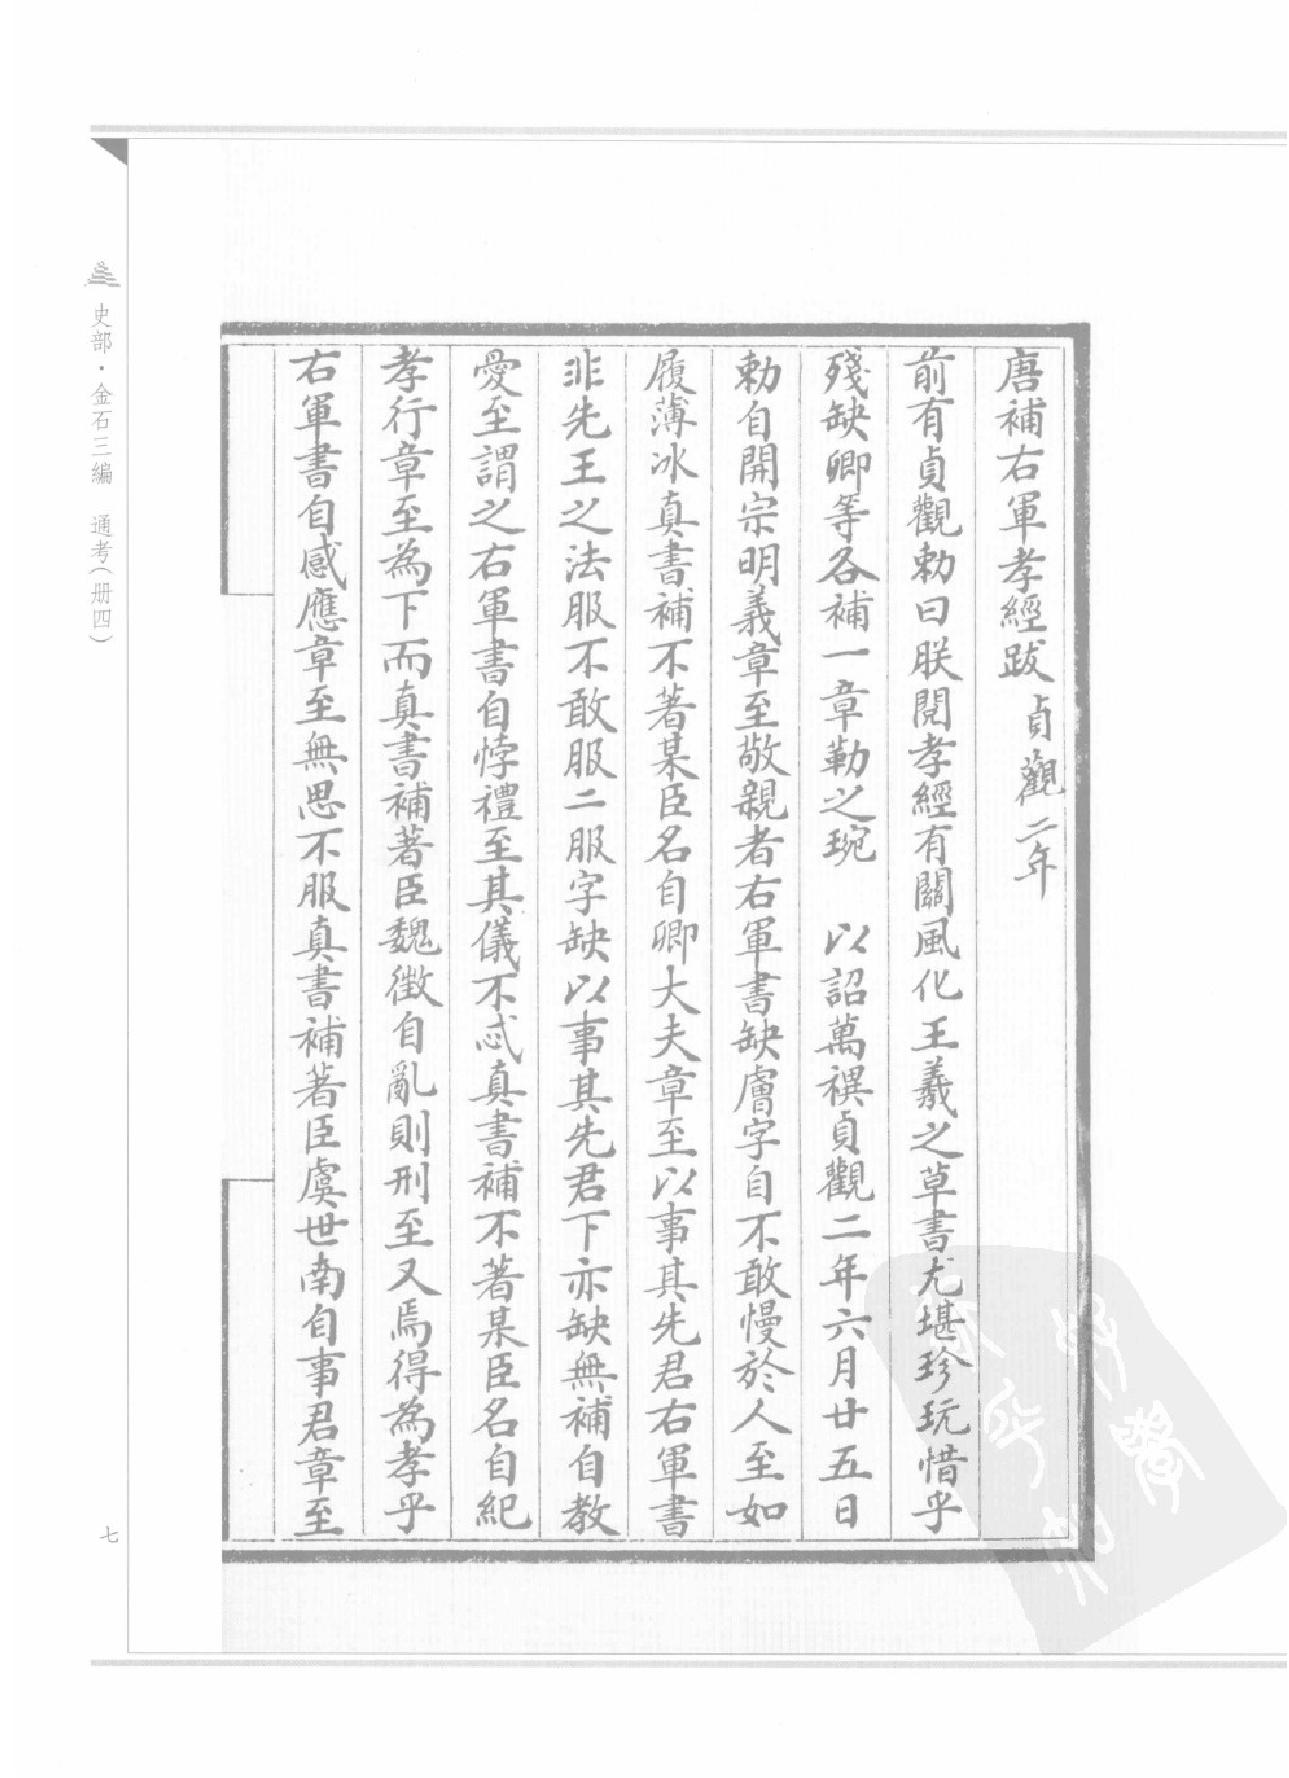 唐補右軍孝經跋 貞觀二年
前有貞觀勅曰朕閱孝經有關風化王羲之草書尤堪珍玩惜乎
殘缺卿等各補一章勒之琬 以詔萬禩貞觀二年六月廿五日
勅自開宗明義章至敬親者右軍書缺膚字自不敢慢於人至如
履薄冰真書補不著某臣名自卿大夫章至以事其先君右軍書
非先王之法服不敢服二服字缺以事其先君下亦缺無補自教
愛至謂之右軍書自悖禮至其儀不忒真書補不著某臣名自紀
孝行章至為下而真書補著臣魏徵自亂則刑至又焉得為孝乎
右軍書自感應章至無思不服真書補著臣虞世南自事君章至
史部·金石三編 通考（册四）
七